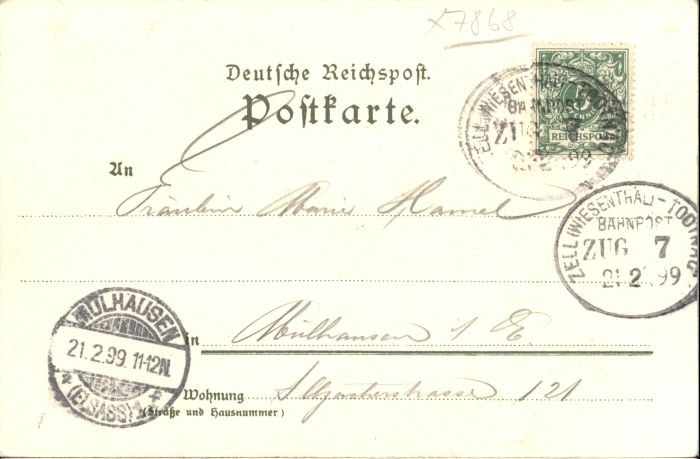 x7868
Deutsche Reichspost.
Postkarte.
5
REICHSPOST
ZELL (WIESENTHAL)
BAHNPOST
ZUG 7
21 2 99
An
Fräulein Marie Hamel
ZELL (WIESENTHAL) - TODTNAU
BAHNPOST
ZUG 7
21 2 99
MÜLHAUSEN
21.2.99. 11-12N.
* (ELSASS) *
in Mülhausen i E
Wohnung 121
(Straße und Hausnummer)